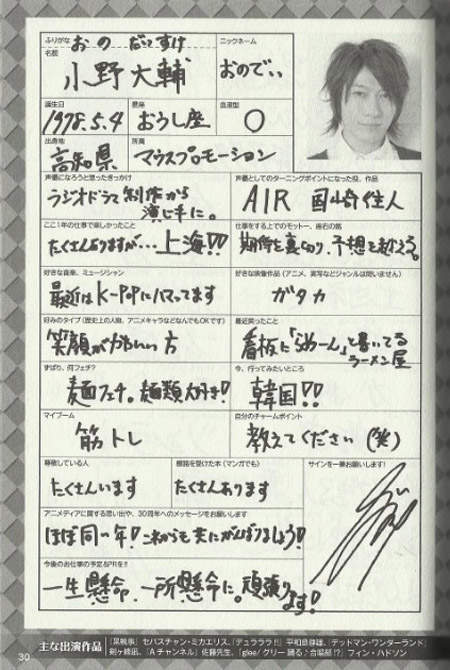 ふりがな おの だいすけ
名前 小野大輔
ニックネーム
おのでぃ
誕生日 1978.5.4
星座 おうし座
血液型 O
出身地 高知県
所属 マウスプロモーション
声優になろうと思ったきっかけ
ラジオドラマ制作から
演じ手に。
声優としてのターニングポイントになった役、作品
AIR 国崎往人
ここ1年の仕事で楽しかったこと
たくさんありますが…上海!!
仕事をする上でのモットー、座右の銘
期待を裏切り、予想を超える。
好きな音楽、ミュージシャン
最近はK-POPにハマってます
好きな映像作品(アニメ、実写などジャンルは問いません)
ガタカ
好みのタイプ(歴史上の人物、アニメキャラなどなんでもOKです)
笑顔がかわいい方
最近笑ったこと
看板に「らめーん」と書いてる
ラーメン屋
ずばり、何フェチ?
麺フェチ。麺類大好き!
今、行ってみたいところ
韓国!!
マイブーム
筋トレ
自分のチャームポイント
教えてください(笑)
尊敬している人
たくさんいます
感銘を受けた本(マンガでも)
たくさんあります
サインを一筆お願いします!
アニメディアに関する思い出や、30周年へのメッセージをお願いします
ほぼ同い年!これからも共にがんばりましょう!
今後のお仕事の予定&PRを!!
一生懸命、一所懸命に。頑張り
ます!
主な出演作品
『黒執事』セバスチャン・ミカエリス、『デュラララ!!』平和島静雄、『デッドマン・ワンダーランド』
剣ヶ峰凪、『Aチャンネル』佐藤先生、『glee/グリー 踊る♪合唱部!?』フィン・ハドソン
30